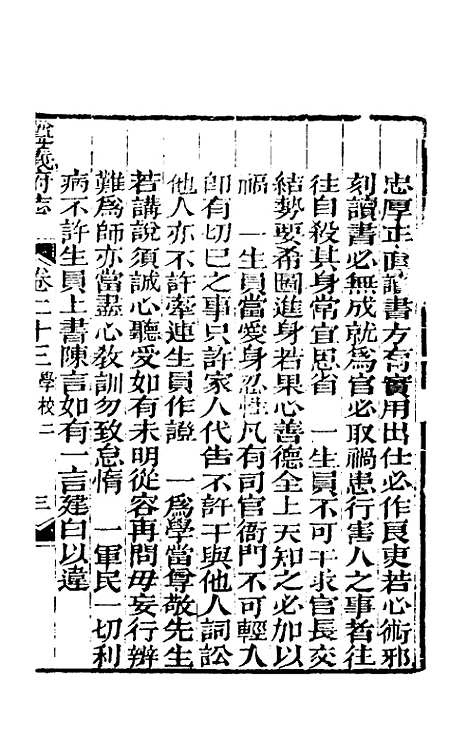 忠厚正直讀書方有實用出仕必作良吏若心術邪
刻讀書必無成就爲官必取禍患行害人之事者往
往自殺其身常宜思省　一生員不可干求官長交
結勢要希圖進身若果心善德全上天知之必加以
福　一生員當愛身忍性凡有司官衙門不可輕入
卽有切已之事只許家人代告不許干與他人詞訟
他人亦不許牽連生員作證　一爲學當尊敬先生
若講說須誠心聽受如有未明從容再問毋妄行辨
難爲師亦當盡心敎訓勿致怠惰　一軍民一切利
病不許生員上書陳言如有一言建白以違
義府志　卷二十三　學校二　三